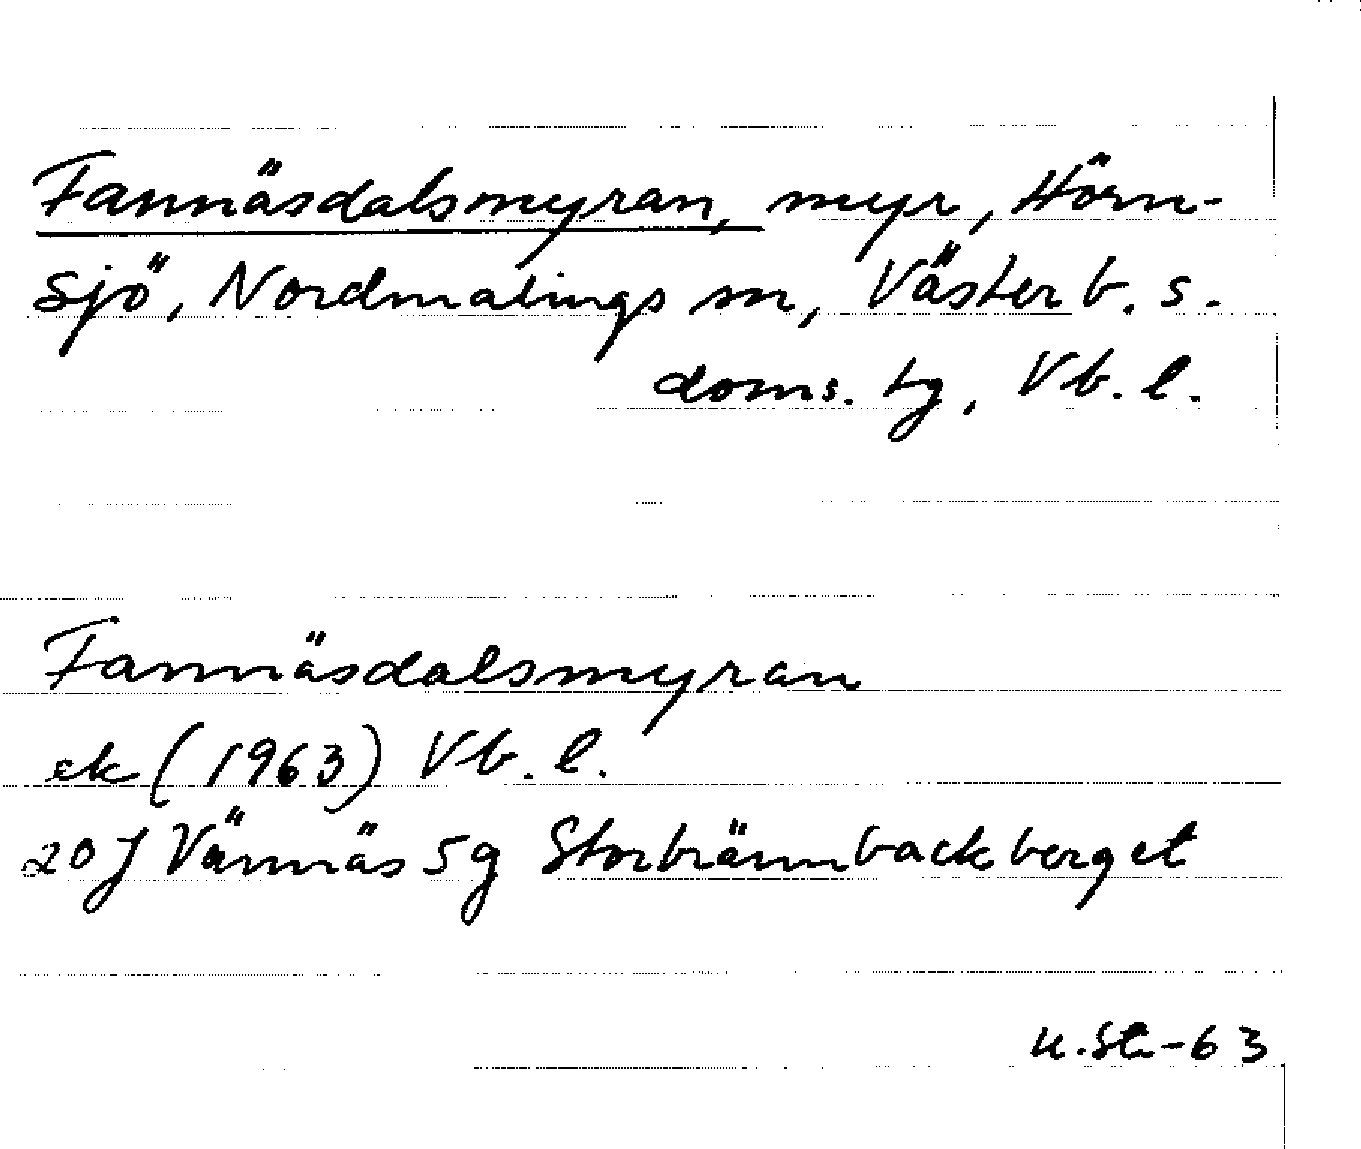 Fannäsdalsmyran, myr, Hörn-
sjö, Nordmalings sn, Västerb. s.
doms. tg, Vb. l.
Fannäsdalsmyran
ek (1963) Vb. l.
20J Vännäs 5g Storbrännbackberget
-63